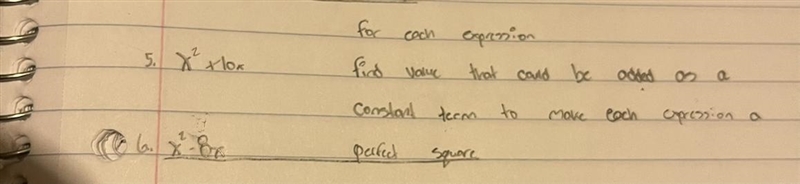 for each expression
5. x² + 10x find value that could be added as a
constant term to make each expression a
6. x² - 8x perfect square